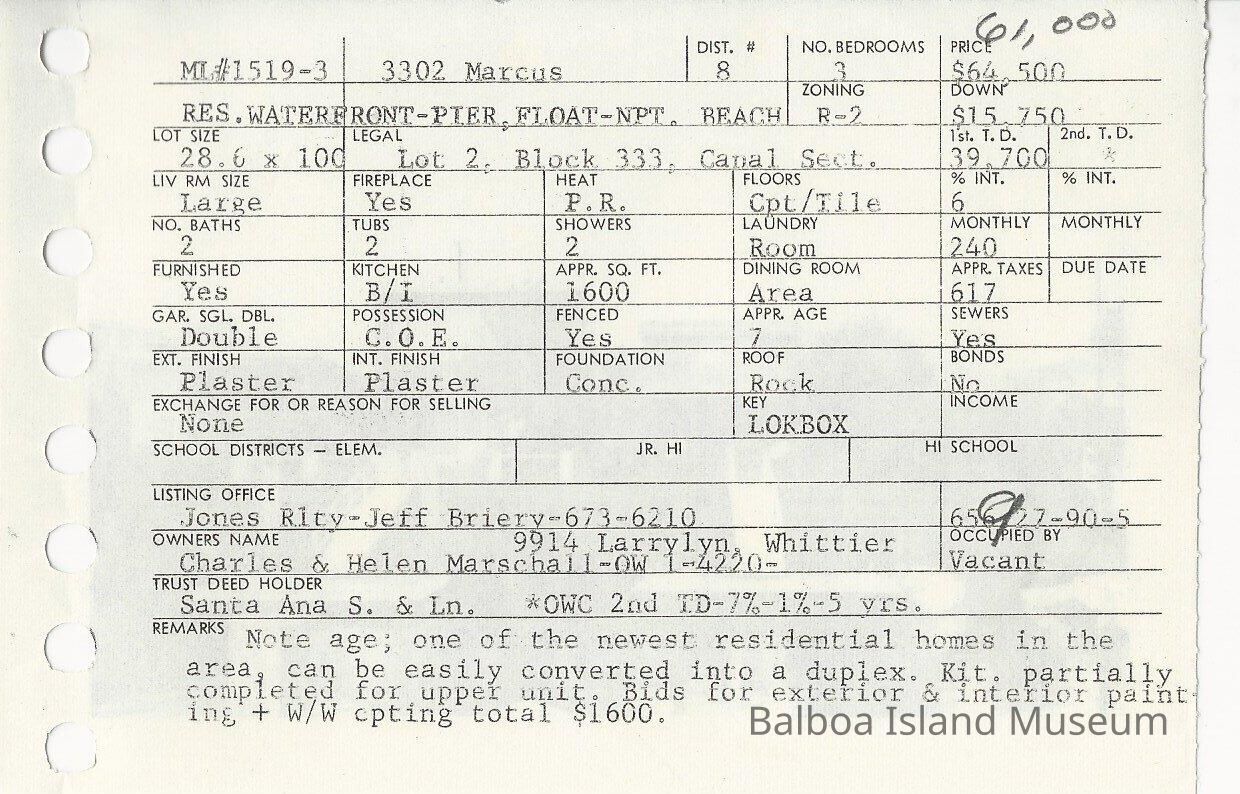 61,000
DIST. # NO. BEDROOMS PRICE
ML#1519-3 3302 Marcus 8 3 $64,500
ZONING DOWN
RES.WATERFRONT-PIER,FLOAT-NPT. BEACH R-2 $15,750
LOT SIZE LEGAL 1st. T. D. 2nd. T. D.
28.6 x 100 Lot 2, Block 333, Canal Sect. 39,700 *
LIV RM SIZE FIREPLACE HEAT FLOORS % INT. % INT.
Large Yes P.R. Cpt/Tile 6
NO. BATHS TUBS SHOWERS LAUNDRY MONTHLY MONTHLY
2 2 2 Room 240
FURNISHED KITCHEN APPR. SQ. FT. DINING ROOM APPR. TAXES DUE DATE
Yes B/I 1600 Area 617
GAR. SGL. DBL. POSSESSION FENCED APPR. AGE SEWERS
Double C.O.E. Yes 7 Yes
EXT. FINISH INT. FINISH FOUNDATION ROOF BONDS
Plaster Plaster Conc. Rock No
EXCHANGE FOR OR REASON FOR SELLING KEY INCOME
None LOKBOX
SCHOOL DISTRICTS – ELEM. JR. HI HI SCHOOL
LISTING OFFICE
Jones Rlty-Jeff Briery-673-6210
OWNERS NAME 9914 Larrylyn, Whittier OCCUPIED BY
Charles & Helen Marschall-OW 1-4220- Vacant
TRUST DEED HOLDER
Santa Ana S. & Ln. *OWC 2nd TD-7%-1%-5 yrs.
REMARKS Note age; one of the newest residential homes in the
area, can be easily converted into a duplex. Kit. partially
completed for upper unit. Bids for exterior & interior paint-
ing + W/W cpting total $1600.
Balboa Island Museum